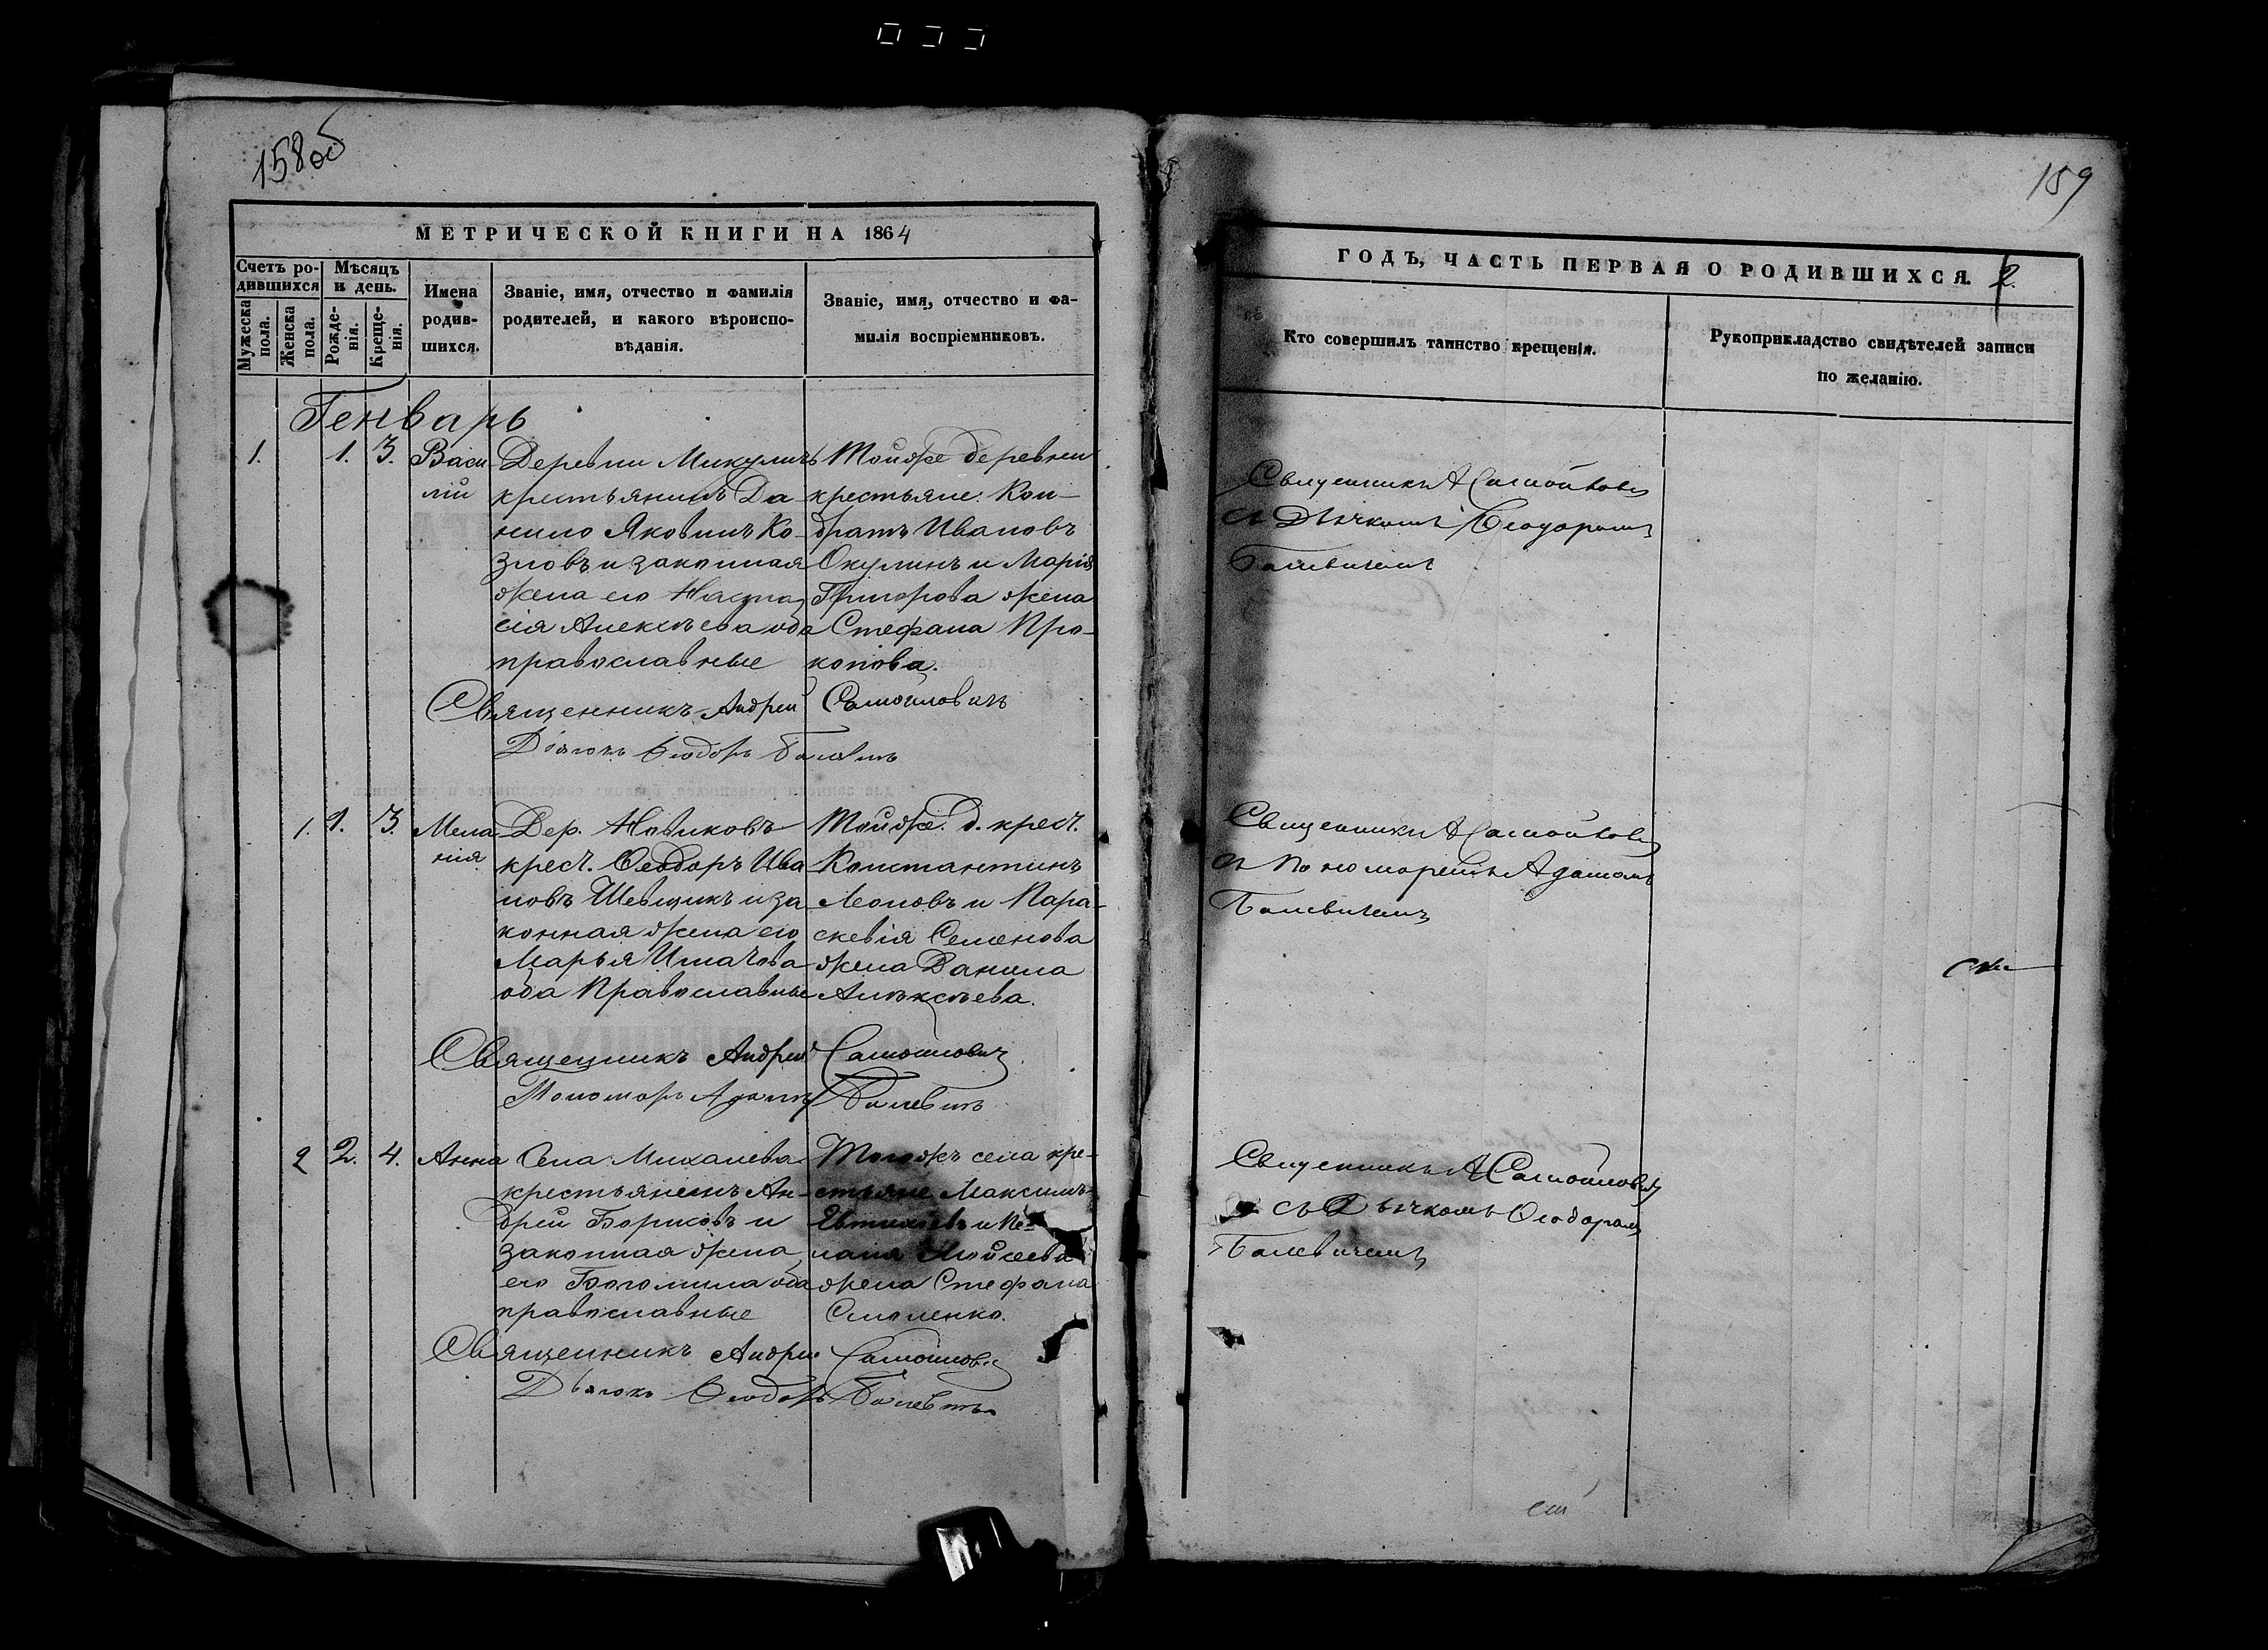 158 об
159
МЕТРИЧЕСКОЙ КНИГИ НА 1864
Счетъ ро-
дившихся
Мужеска пола.
Женска пола.
Мѣсяцъ
и день.
Рожде-
нія.
Креще-
нія.
Имена
родив-
шихся.
Званіе, имя, отчество и фамилія
родителей, и какого вѣроиспо-
вѣданія.
Званіе, имя, отчество и фа-
милія воспріемниковъ.
ГОДЪ, ЧАСТЬ ПЕРВАЯ О РОДИВШИХСЯ. 2.
Кто совершилъ таинство крещенія.
Рукоприкладство свидѣтелей записи
по желанію.
Генварь
1. 1. 3.
Васи-
лій
Деревни Микуличъ
крестьянинъ Да-
нило Яковлевъ Ко-
зловъ и законная
жена его Настас-
сія Алексѣева оба
православные
Тойже деревни
крестьяне: Кон-
дратъ Ивановъ
Окулинъ и Марія
Григорова жена
Стефана Про-
копова.
Священникъ Андрей Самойловичъ
Дьячокъ Ѳеодоръ Балевичъ
Священникъ А Самойлович
съ Дьячкомъ Ѳеодоромъ
Балевичемъ
1. 1. 3.
Мела-
нія
Дер. Новиковъ
крест. Ѳеодоръ Ива-
новъ Шевцикъ и за-
конная жена его
Марья Игнатова
оба Православные
Тойже д. крест.
Константинъ
Леоновъ и Пара-
скевія Семенова
жена Данила
Алексѣева.
Священникъ Андрей Самойлович
Пономарь Адамъ Балевичъ
Священникъ А Самойлович
съ Пономаремъ Адамомъ
Балевичемъ
2 2. 4.
Анна
Села Михалева
крестьянинъ Ан-
дрей Борисовъ и
законная жена
его Богомила оба
православные
Тогожъ села кре-
стьяне Максимъ
Евтихіевъ и Пе-
лагія Мойсеева
жена Стефана
Смоленко.
Священникъ Андрей Самойлович
Дьячокъ Ѳеодоръ Балевичъ
Священникъ А Самойлович
съ Дьячкомъ Ѳеодоромъ
Балевичемъ